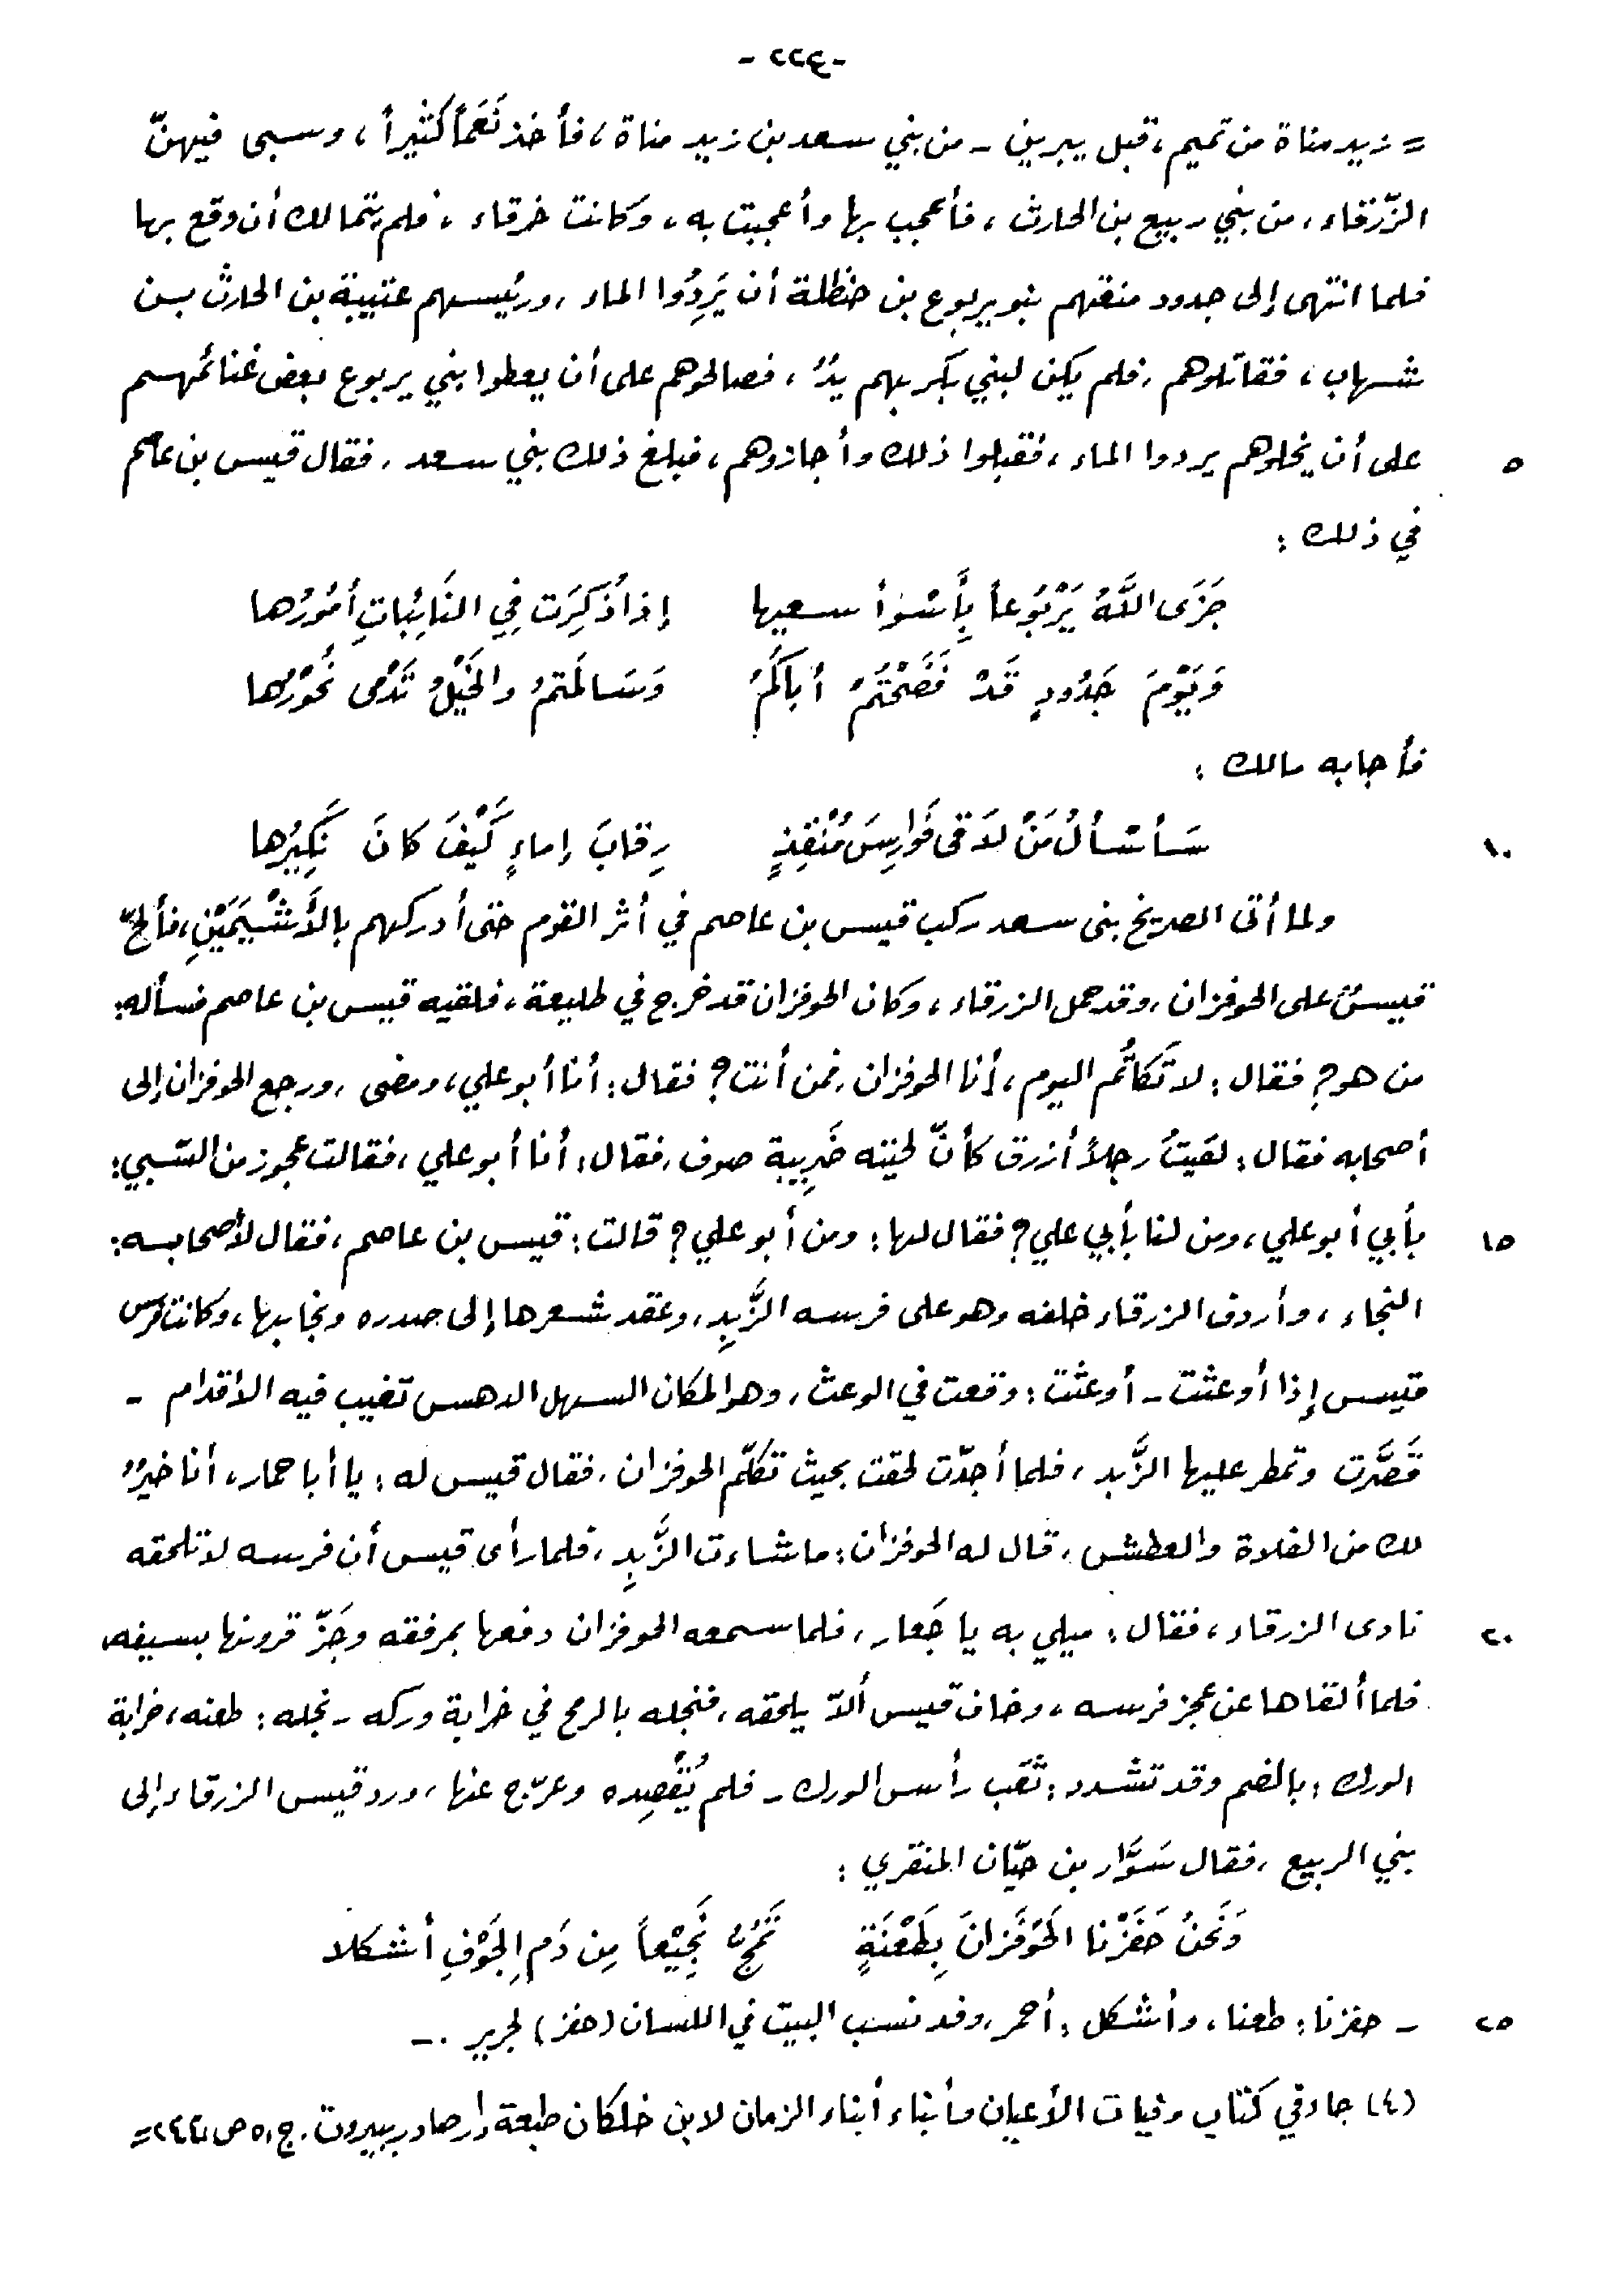 - ٢٢٤ -
= زيد مناة من تميم، قبل يبرين - من بني سعد بن زيد مناة، فأخذ نَعَماً كثيراً، وسبى فيهنّ
الزّرقاء، من بني ربيع بن الحارث، فأعجب بها وأعجبت به، وكانت خرقاء، فلم يتمالك أن وقع بها
فلما انتهى إلى جدود منعهم بنو يربوع بن حنظلة أن يَرِدُوا الماء، ورئيسهم عتيبة بن الحارث بـن
شهاب، فقاتلوهم، فلم يكن لبني بكر بهم يدٌ، فصالحوهم على أن يعطوا بني يربوع بعض غنائمهـم
٥ على أن يخلوهم يردوا الماء، فقبلوا ذلك وأجازوهم، فبلغ ذلك بني سعد، فقال قيس بن عاصم
في ذلك :
جَزَى اللَّهُ يَرْبُوعاً بِأَسْوَأ سعيها إذا ذُكِرَت فِي النَائِبَاتِ أُمُورُها
وَيَوْمَ جَدُودٍ قَدْ فَضَحْتُمْ أَباكُمُ وَسَالَمْتمُ والخَيْلُ تَدْمَى نُحُوْرُها
فأجابه مالك :
١٠ سَأَسْأَلُ مَنْ لاَقى فَوَارِسَ مُنْقِذٍ رِقابَ إماءٍ كَيْفَ كانَ نَكِيْرُها
ولما أتى الصريخ بنى سعد ركب قيس بن عاصم في أثر القوم حتى أدركهم بالأَشْيَمَيْنِ، فألحّ
قيسٌ على الحوفزان، وقد حمل الزرقاء، وكان الحوفزان قد خرج في طليعة، فلقيه قيس بن عاصم فسأله:
من هو؟ فقال: لا تَكَاتُم اليوم، أنا الحوفزان، فمن أنت؟ فقال: أنا أبو علي، ومضى، ورجع الحوفزان إلى
أصحابه فقال: لقيتُ رجلاً أزرق كأنّ لحيته ضَرِيبة صوف، فقال: أنا أبو علي، فقالت عجوز من السّبي:
١٥ بأبي أبو علي، ومن لنا بأبي علي؟ فقال لها: ومن أبو علي؟ قالت: قيس بن عاصم، فقال لأصحابـه:
النجاء، وأردف الزرقاء خلفه وهو على فرسه الزَّبِدِ، وعقد شعرها إلى صدره ونجا بها، وكانت فرس
قيس إذا أوعثت - أوعثت: وقعت في الوعث، وهو المكان السهل الدهس تغيب فيه الأقدام -
قَصَّرت وتمطر عليها الزَّبد، فلما أجدّت لحقت بحيث تكلّم الحوفزان، فقال قيس له: يا أبا حمار، أنا خيرٌ
لك من الفلاة والعطش، قال له الحوفزان: ما شاءت الزَّبِدِ، فلما رأى قيس أن فرسه لا تلحقه
٢٠ نادى الزرقاء، فقال: ميلي به يا جَعار، فلما سمعه الحوفزان دفعها بمرفقه وجَزّ قرونها بسيفه،
فلما ألقاها عن عجز فرسه، وخاف قيس ألاّ يلحقه، فنجله بالرمح في خرابة وركه - نجله: طعنه، خرابة
الورك: بالضم وقد تشدد: ثقب رأس الورك - فلم يُقْصِده وعرّج عنها، ورد قيس الزرقاء إلى
بني الربيع، فقال سَوَّار بن حيّان المنقري :
وَنَحْنُ حَفَزْنا الحَوْفَزانَ بِطَعْنَةٍ تَمُجُّ نَجِيْعاً مِن دَمِ الجَوْفِ أشكلا
٢٥ - حفزنا: طعنا، وأشكل: أحمر، وقد نسب البيت في اللسان (حفز) لجرير .-
(٤) جاء في كتاب وفيات الأعيان وأنباء أبناء الزمان لابن خلكان طبعة دار صادر ببيروت. ج،٥ ص،٢٤٤ =